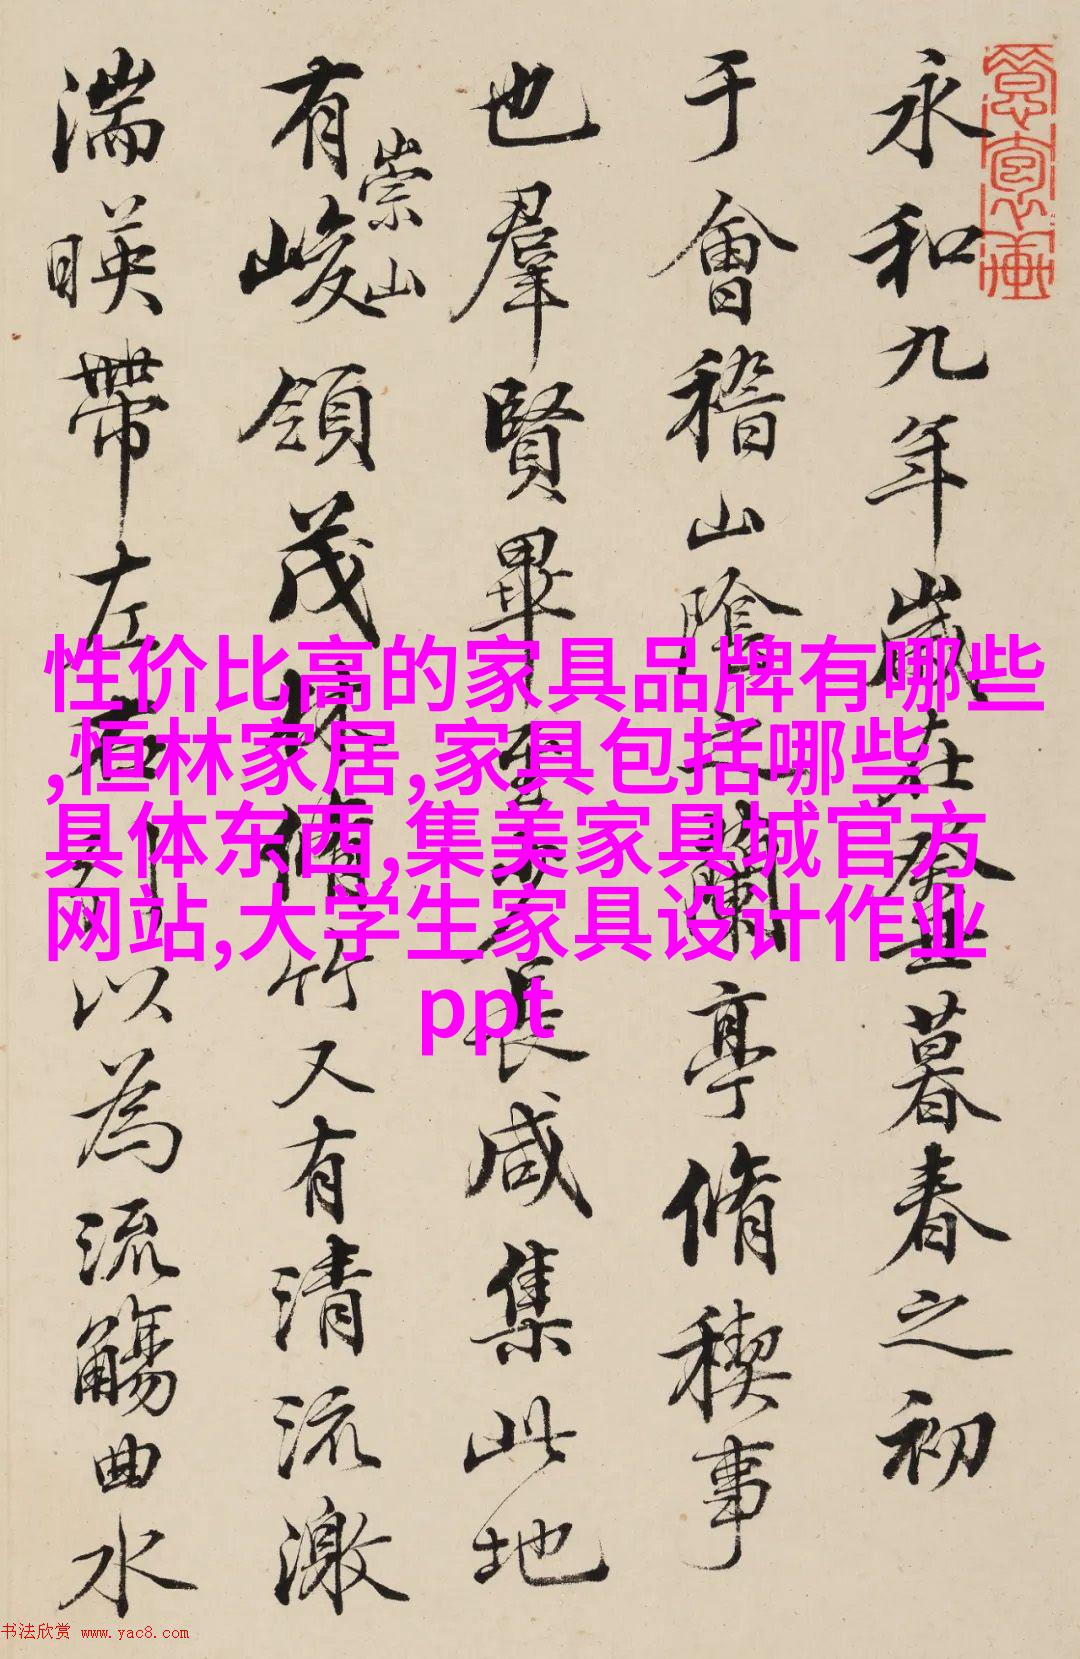 永和九年歲在癸丑暮春之初
于會稽山陰之蘭亭脩稧事
也羣賢畢至少長咸集此地
有崇山峻領茂林脩竹又有清流激
湍暎帶左右引以為流觴曲水
性价比高的家具品牌有哪些
,恒林家居,家具包括哪些
具体东西,集美家具城官方
网站,大学生家具设计作业
ppt
书法欣赏 www.yac8.com